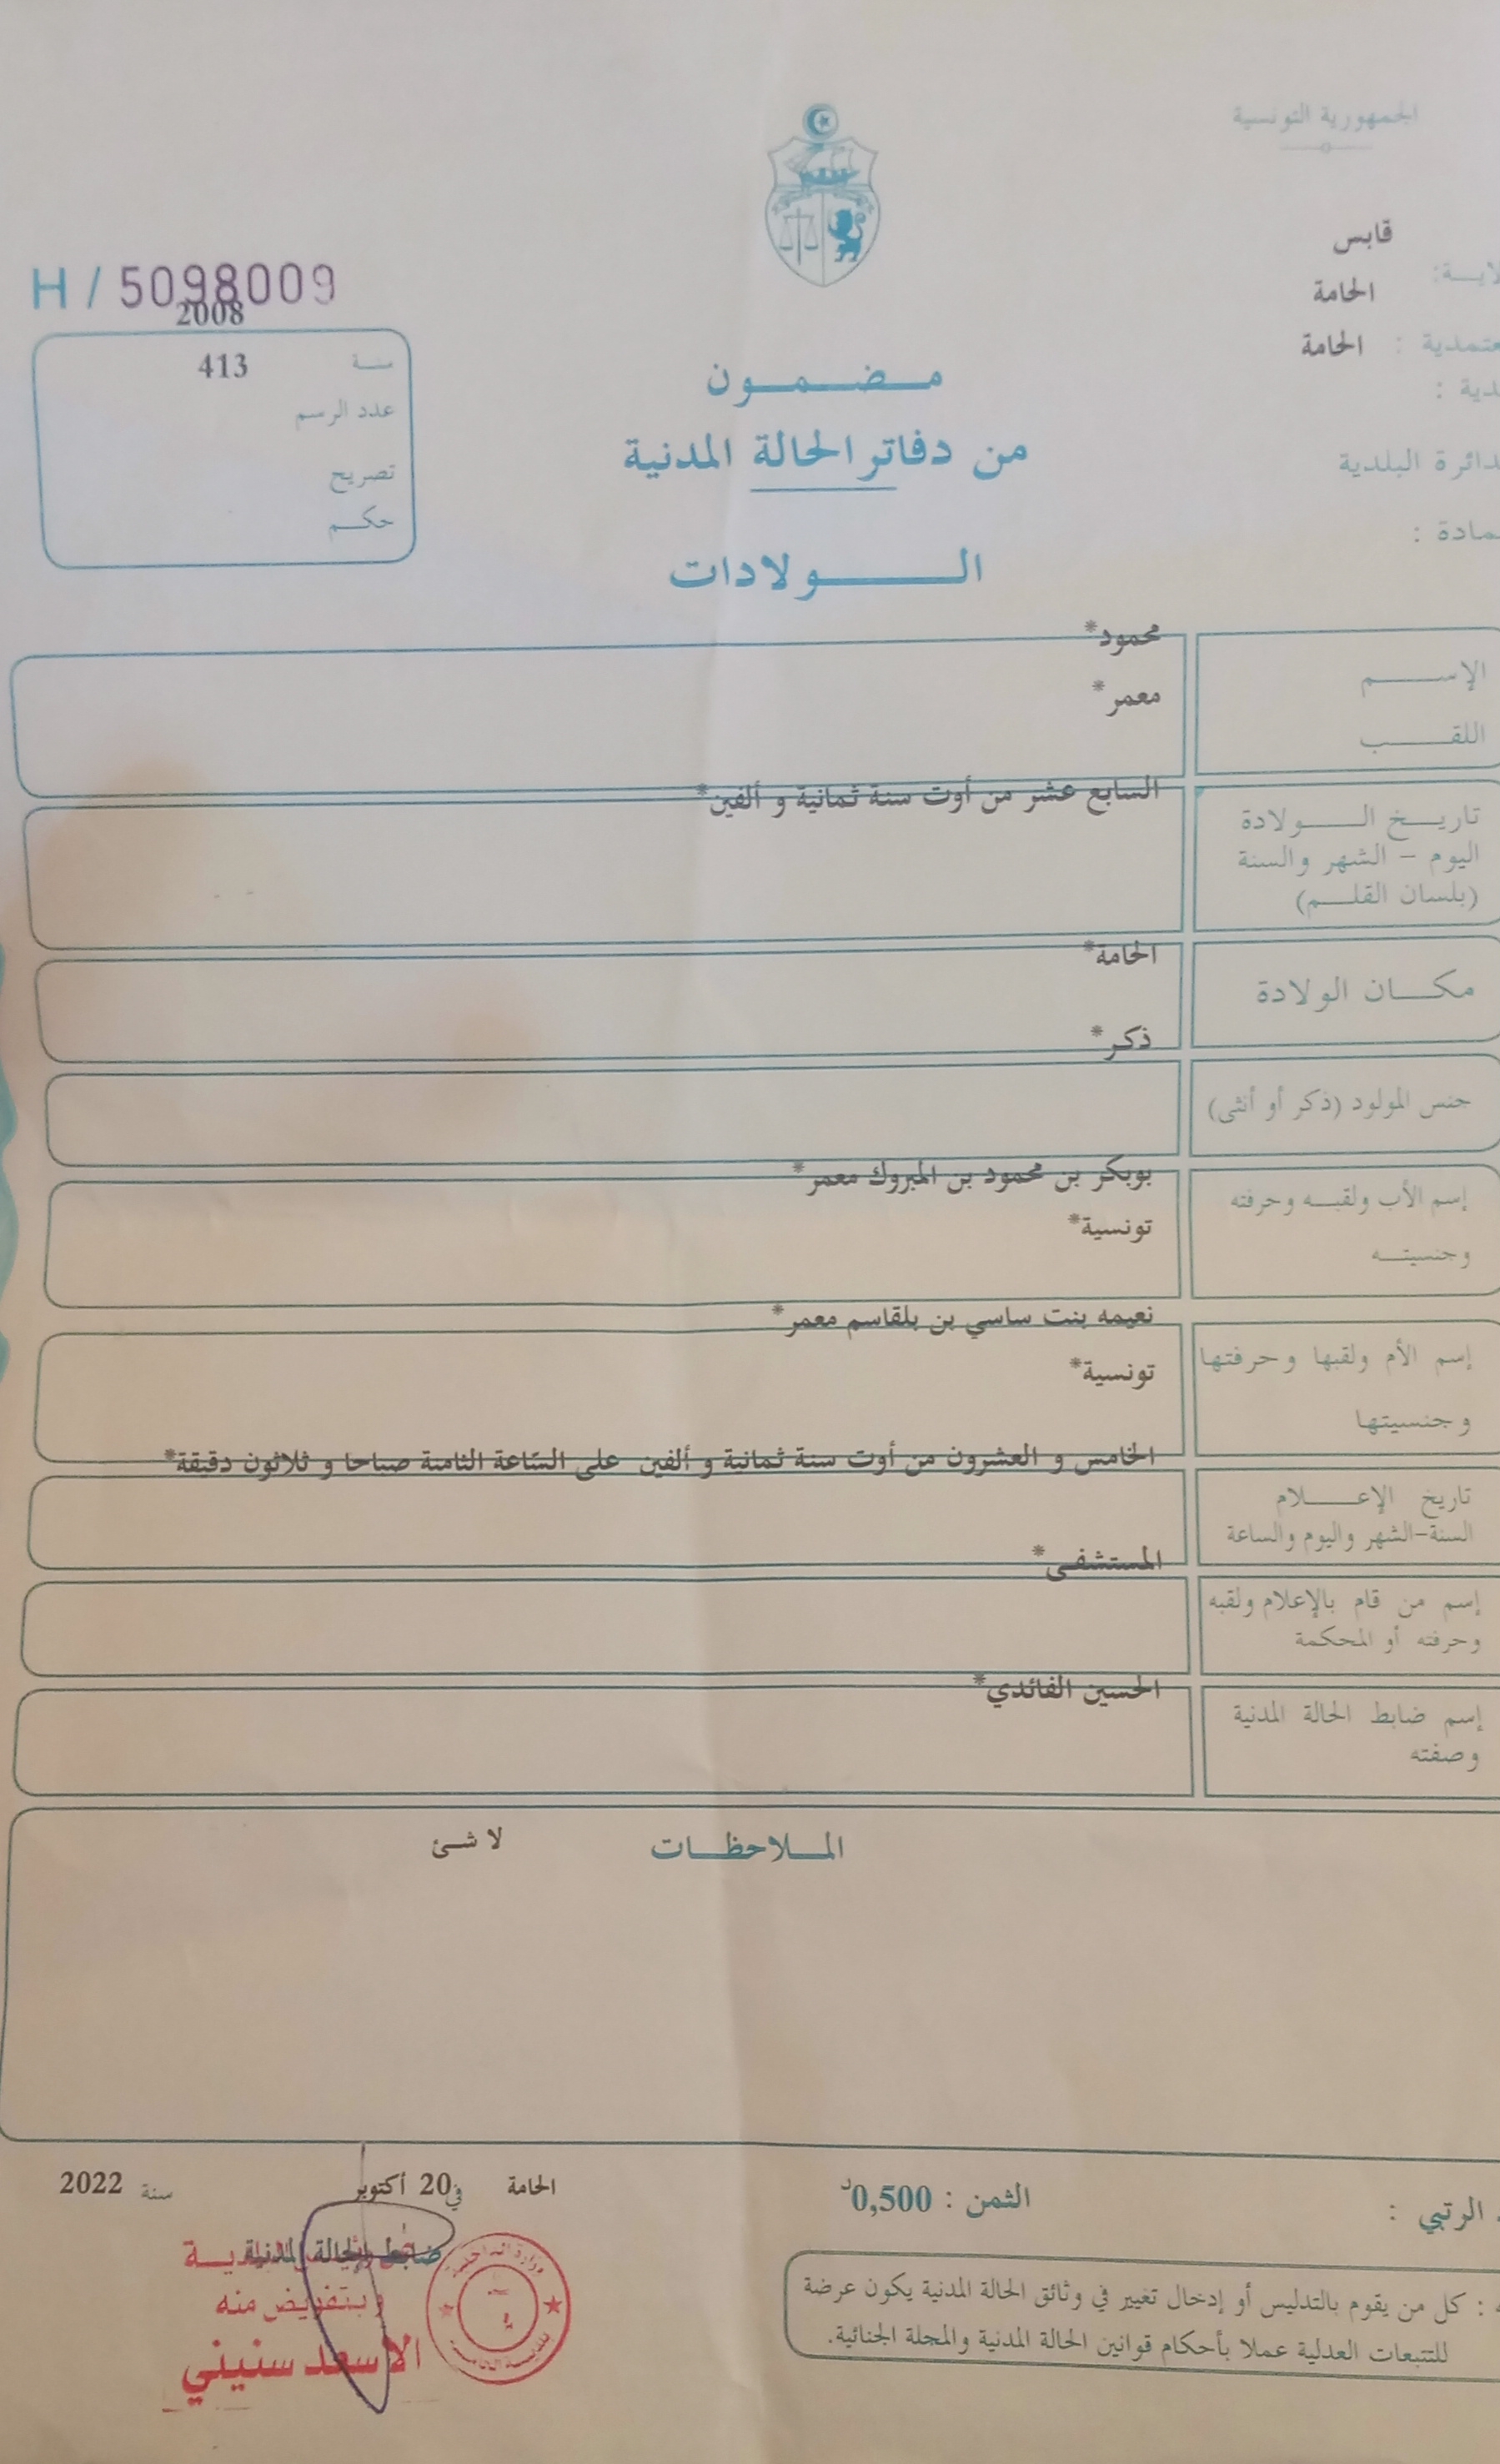 الجمهورية التونسية
قابس
لايـــة:
الحامة
عتمدية : الحامة
لدية :
دائرة البلدية
مادة :
H / 5098009
2008
سنـــة 413
عدد الرسم
تصريح
حكـــم
مـــضـــمـــون
من دفاتر الحالة المدنية
الـــــولادات
الإســـــم محمود*
اللقـــــب معمر*
تاريـــخ الـــــولادة السابع عشر من أوت سنة ثمانية و ألفين*
اليوم - الشهر والسنة
(بلسان القلـــم)
مكـــان الولادة الحامة*
جنس المولود (ذكر أو أنثى) ذكر*
إسم الأب ولقبـــه وحرفته بوبكر بن محمود بن المبروك معمر*
وجنسيتـــه تونسية*
إسم الأم ولقبها وحرفتها نعيمه بنت ساسي بن بلقاسم معمر*
وجنسيتها تونسية*
تاريخ الإعـــــلام الخامس و العشرون من أوت سنة ثمانية و ألفين على السّاعة الثامنة صباحا و ثلاثون دقيقة*
السنة-الشهر واليوم والساعة
إسم من قام بالإعلام ولقبه المستشفى*
وحرفته أو المحكمة
إسم ضابط الحالة المدنية الحسين الفائدي*
وصفته
المـــلاحظـــات لا شئ
الرتبي :
الثمن : 0,500د
الحامة في 20 أكتوبر سنة 2022
ضابط الحالة المدنية
وبتفويض منه
الاسعد سنيني
: كل من يقوم بالتدليس أو إدخال تغيير في وثائق الحالة المدنية يكون عرضة
للتتبعات العدلية عملا بأحكام قوانين الحالة المدنية والمجلة الجنائية.